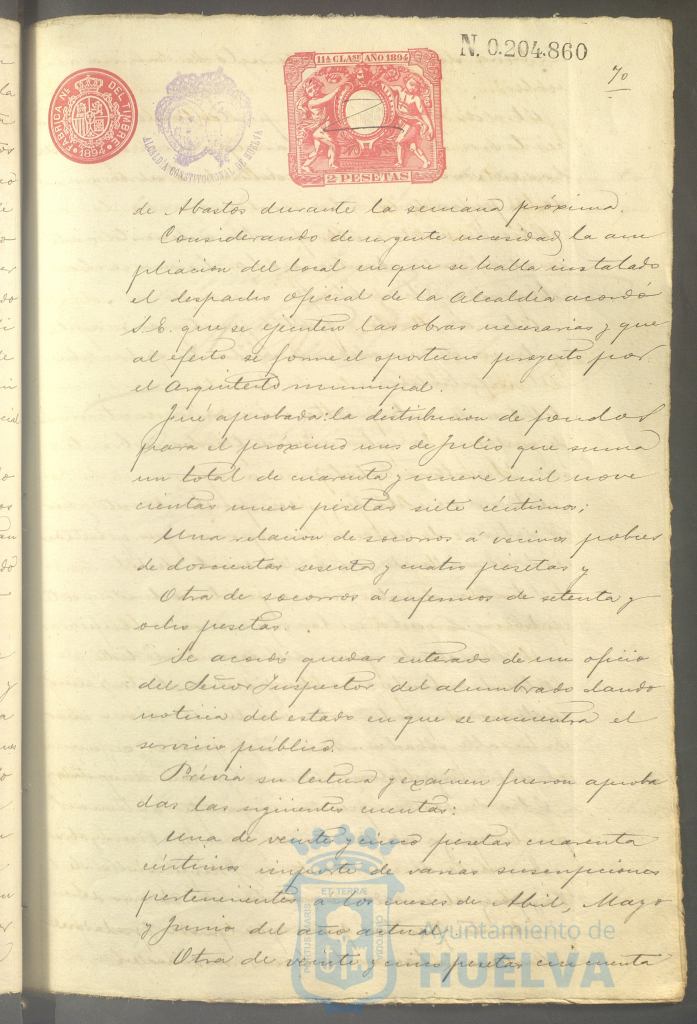 N. 0.204.860
70
FABRICA NL. DEL TIMBRE
1894
ALCALDÍA CONSTITUCIONAL DE HUELVA
11ª CLASE AÑO 1894
2 PESETAS
de Abastos durante la semana próxima.
Considerando de urgente necesidad la am
pliacion del local en que se halla instalado
el despacho oficial de la Alcaldía acordó
S.E. que se ejecuten las obras necesarias y que
al efecto se forme el oportuno proyecto por
el Arquitecto municipal.
Fué aprobada: la distribucion de fondos
para el próximo mes de Julio que suma
un total de cuarenta y nueve mil nove
cientas nueve pesetas siete céntimos;
Una relacion de socorros á vecinos pobres
de doscientas sesenta y cuatro pesetas y
Otra de socorros á enfermos de setenta y
ocho pesetas.
Se acordó quedar enterado de un oficio
del Señor Inspector del alumbrado dando
noticia del estado en que se encuentra el
servicio público.
Prévia su lectura y exámen fueron aproba
das las siguientes cuentas:
Una de veinte y cinco pesetas cuarenta
céntimos importe de varias suscripciones
pertenecientes á los meses de Abril, Mayo
y Junio del año actual.
Otra de veinte y cinco pesetas cincuenta
Ayuntamiento de
HUELVA